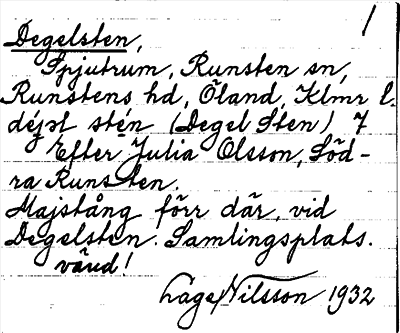 1
Degelsten,
Spjutrum, Runsten sn,
Runstens hd, Öland, Klmr l.
déjəl stén (Degel Sten) 7
Efter Julia Olsson, Söd-
ra Runsten.
Majstång förr där, vid
Degelsten. Samlingsplats.
vänd!
Låge Nilsson 1932